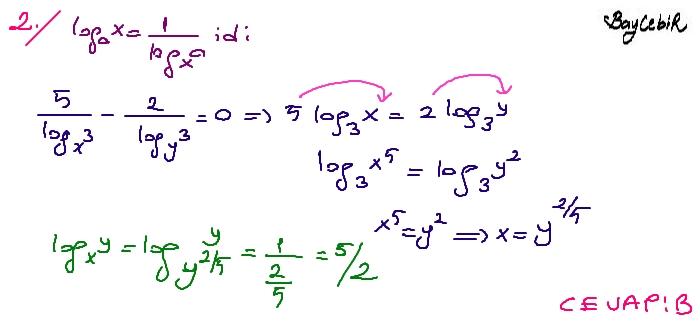 BayCebiR
2./ logₐx = 1/logₓa idi
5/logₓ3 - 2/log_y3 = 0 => 5 log₃x = 2 log₃y
log₃x⁵ = log₃y²
x⁵ = y² => x = y^(2/5)
logₓy = log_(y^(2/5)) y = 1/(2/5) = 5/2
CEVAP: B